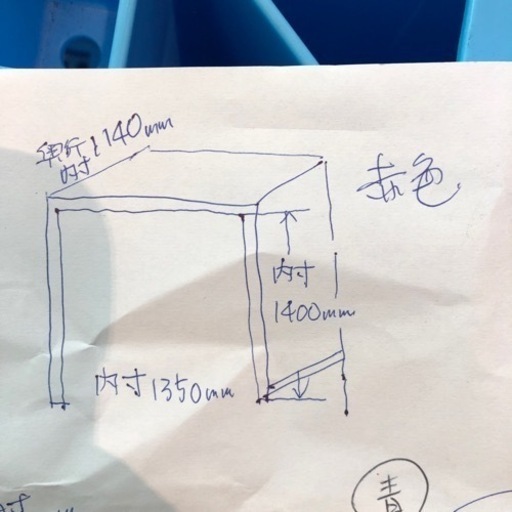 奥行き140mm
内寸
赤色
内寸
1400mm
内寸1350mm
青